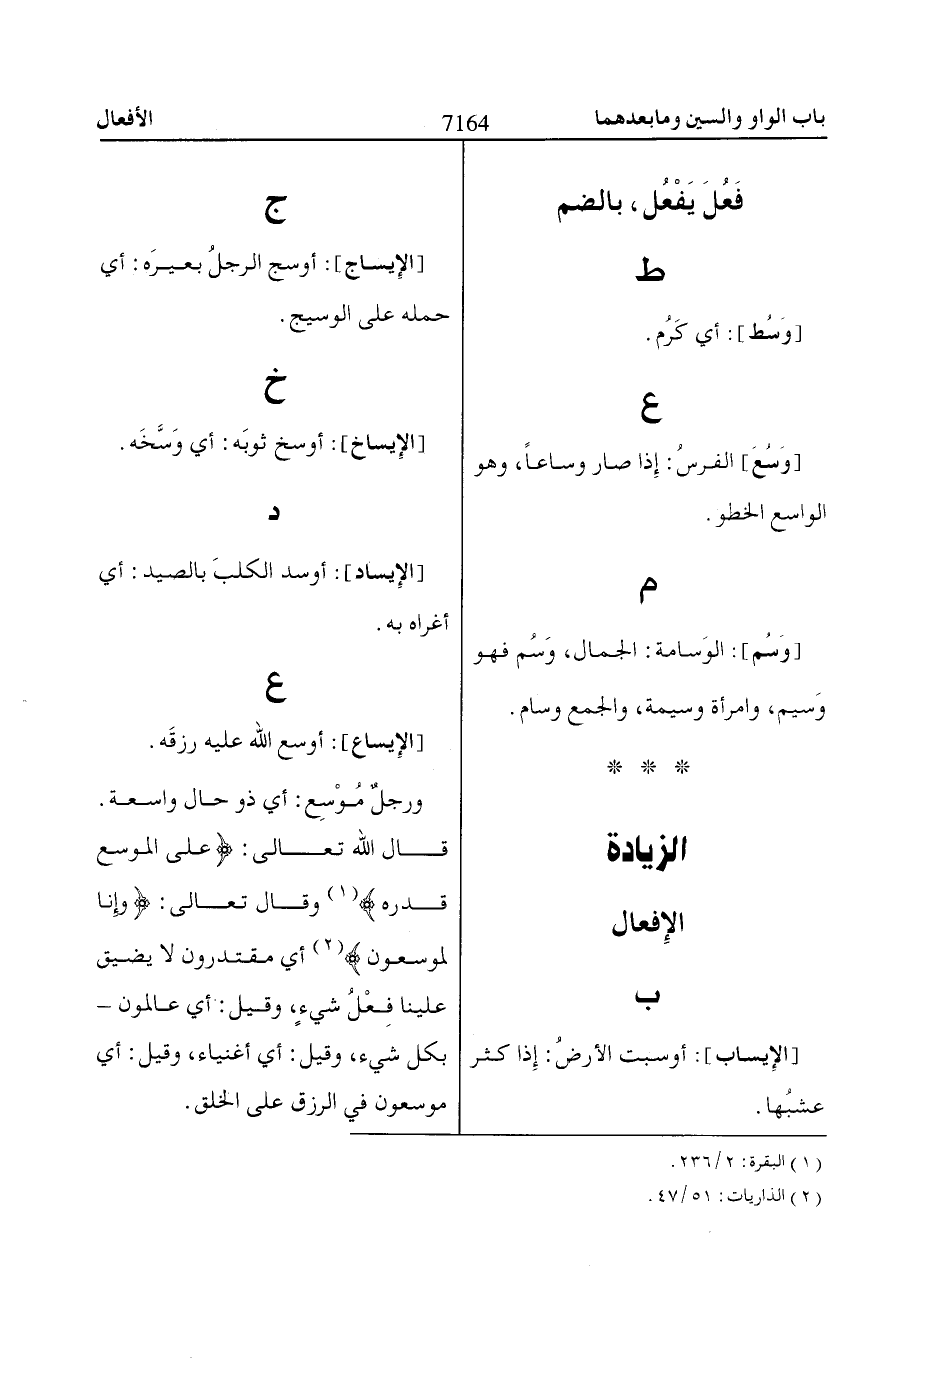 باب الواو والسين ومابعدهما 7164 الأفعال
فَعُلَ يَفْعُل، بالضم
ط
[وَسُط]: أي كَرُم.
ع
[وَسُعَ] الفرسُ: إِذا صار وساعاً، وهو
الواسع الخطو.
م
[وَسُم]: الوَسامة: الجمال، وَسُم فهو
وَسيم، وامرأة وسيمة، والجمع وسام.
* * *
الزيادة
الإِفعال
ب
[الإِيساب]: أوسبت الأرضُ: إِذا كثر
عشبُها.
ج
[الإِيساج]: أوسج الرجلُ بعيرَه: أي
حمله على الوسيج.
خ
[الإِيساخ]: أوسخ ثوبَه: أي وَسَّخَه.
د
[الإِيساد]: أوسد الكلبَ بالصيد: أي
أغراه به.
ع
[الإِيساع]: أوسع الله عليه رزقَه.
ورجلٌ مُوْسِع: أي ذو حال واسعة.
قال الله تعالى: ﴿على الموسع
قدره﴾(١) وقال تعالى: ﴿وإِنا
لموسعون﴾(٢) أي مقتدرون لا يضيق
علينا فِعْلُ شيءٍ، وقيل: أي عالمون –
بكل شيء، وقيل: أي أغنياء، وقيل: أي
موسعون في الرزق على الخلق.
(١) البقرة: ٢/٢٣٦.
(٢) الذاريات: ٥١/٤٧.